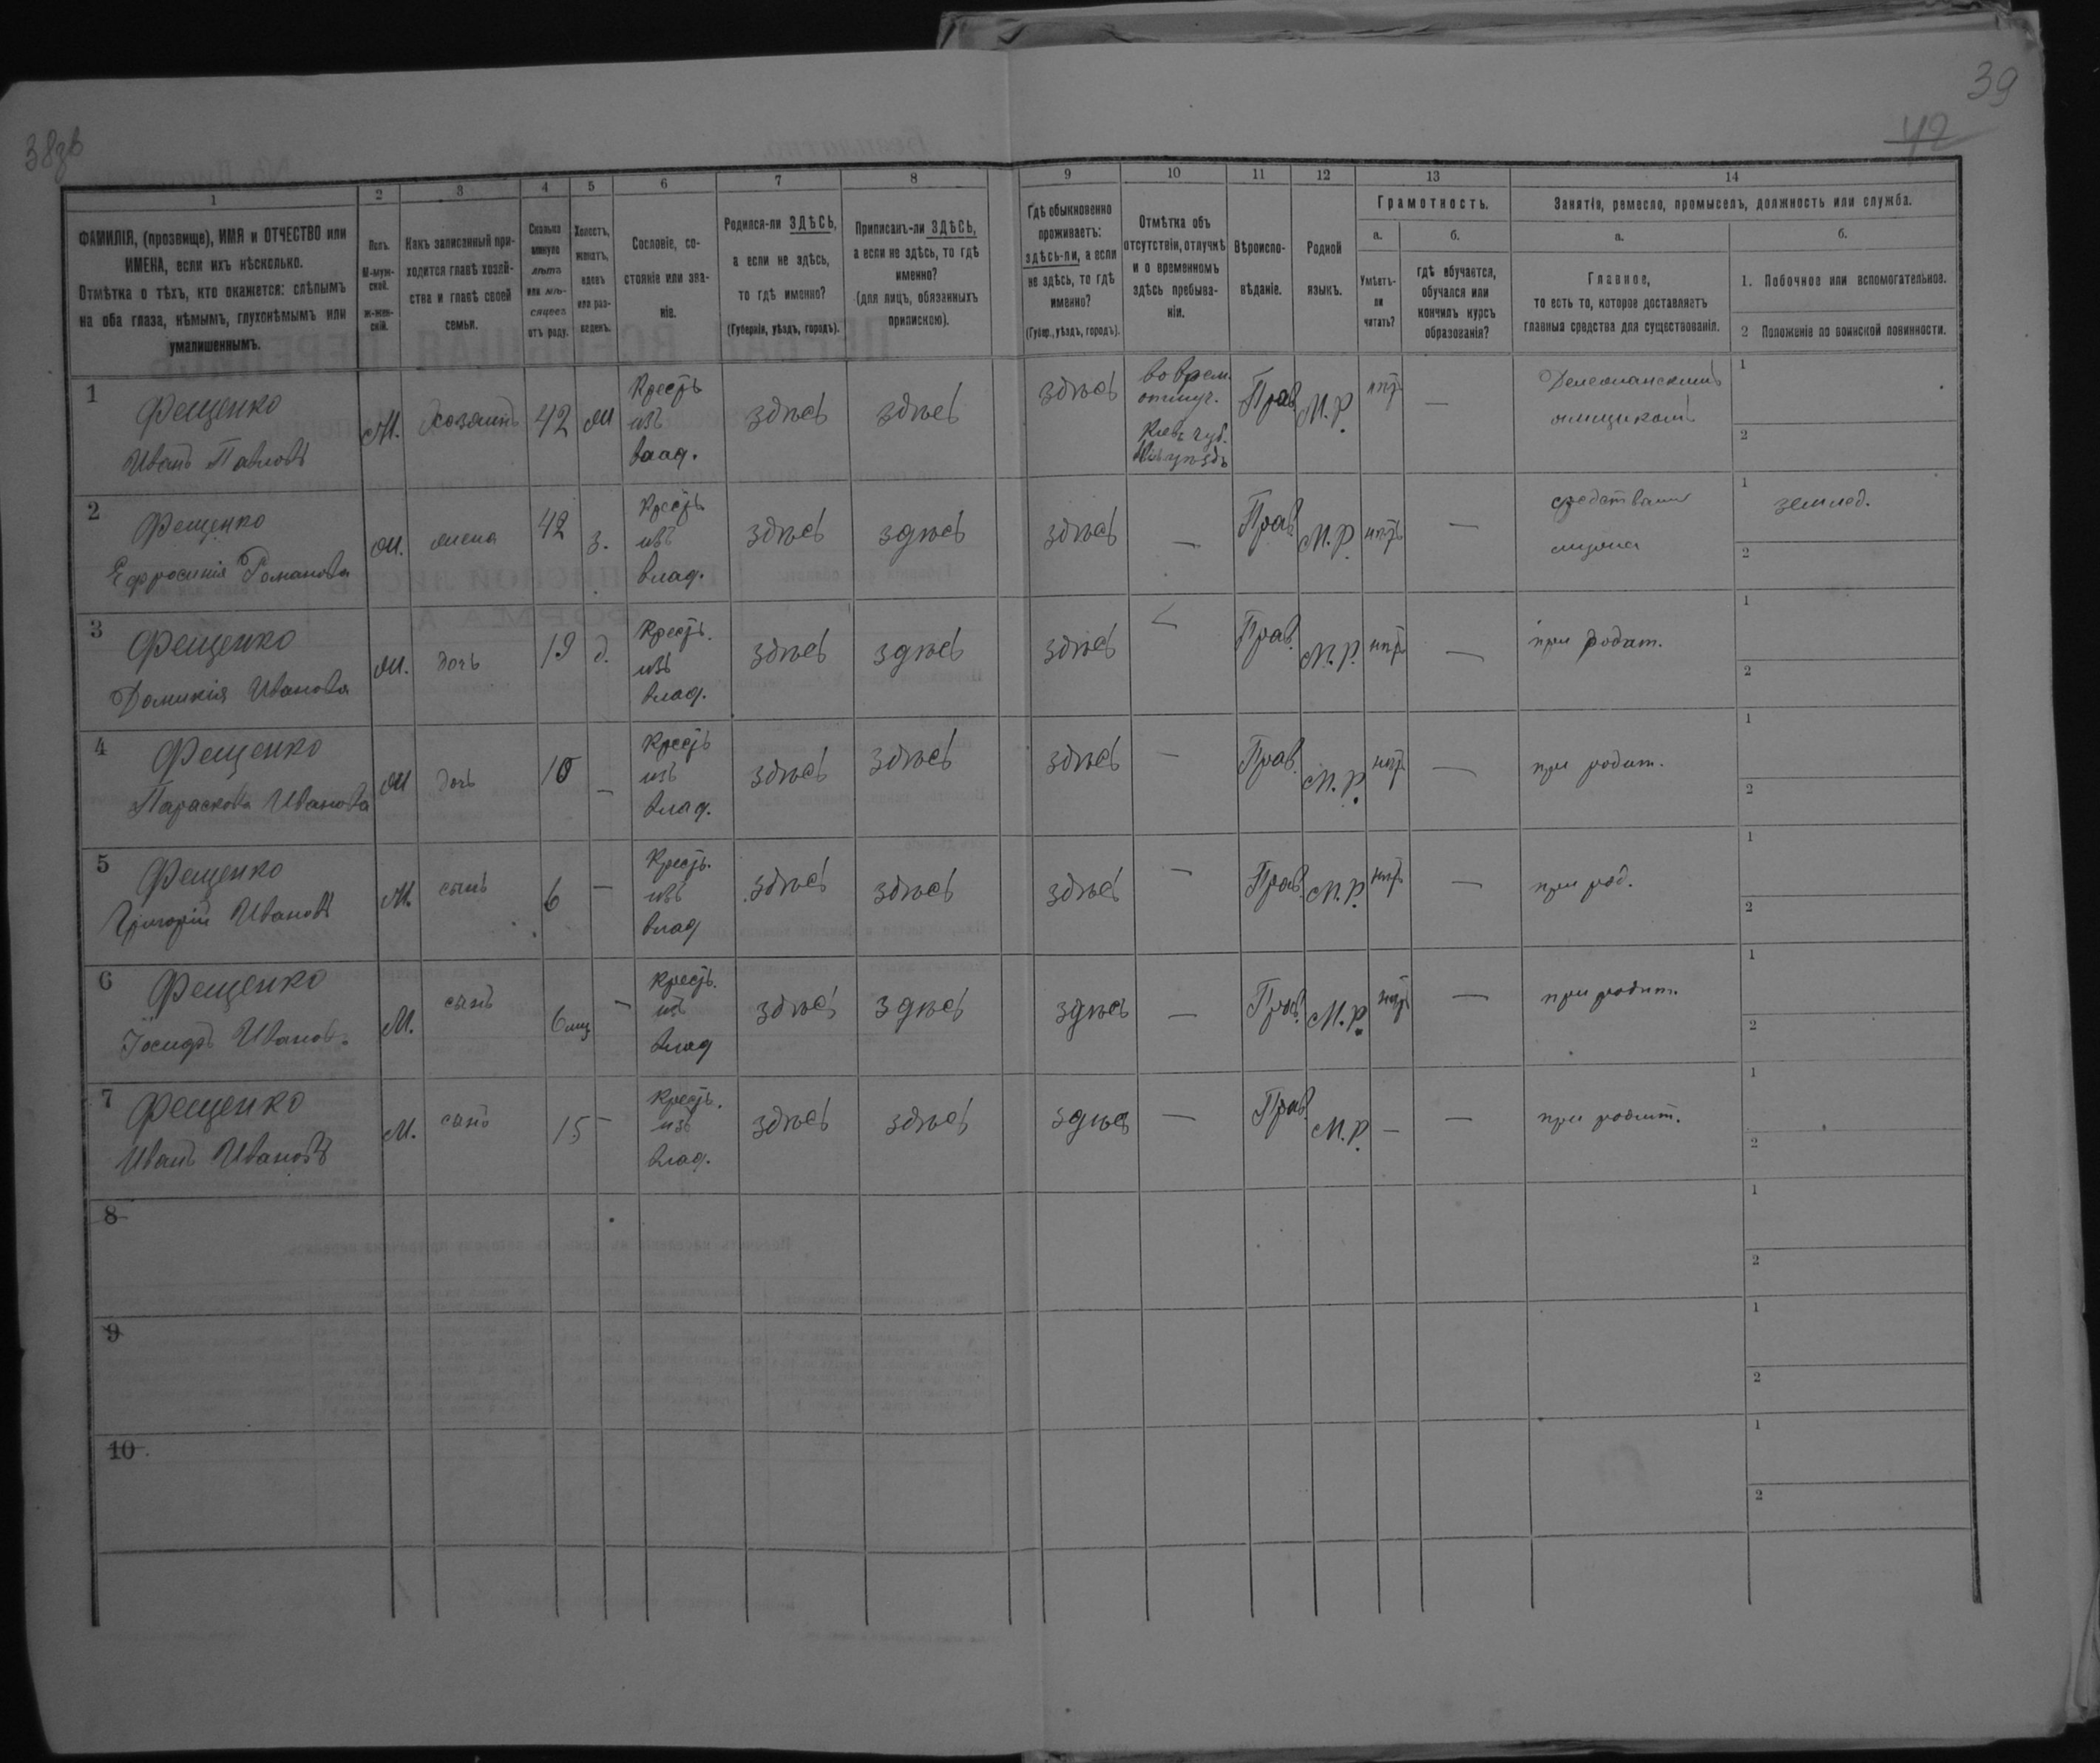 38зв
39
42
1
2
3
4
5
6
7
8
9
10
11
12
13
14
ФАМИЛІЯ, (прозвище), ИМЯ и ОТЧЕСТВО или
ИМЕНА, если ихъ нѣсколько.
Отмѣтка о тѣхъ, кто окажется: слѣпымъ
на оба глаза, нѣмымъ, глухонѣмымъ или
умалишеннымъ.
Полъ.
М-муж-
ской.
ж-жен-
скій.
Какъ записанный при-
ходится главѣ хозяй-
ства и главѣ своей
семьи.
Сколько
минуло
лѣтъ
или мѣ-
сяцевъ
отъ роду.
Холостъ,
женатъ,
вдовъ
или раз-
веденъ.
Сословіе, со-
стояніе или зва-
ніе.
Родился-ли ЗДѢСЬ,
а если не здѣсь,
то гдѣ именно?
(Губернія, уѣздъ, городъ).
Приписанъ-ли ЗДѢСЬ,
а если не здѣсь, то гдѣ
именно?
(для лицъ, обязанныхъ
припискою).
Гдѣ обыкновенно
проживаетъ:
здѣсь-ли, а если
не здѣсь, то гдѣ
именно?
(Губер., уѣздъ, городъ).
Отмѣтка объ
отсутствіи, отлучкѣ
и о временномъ
здѣсь пребыва-
ніи.
Вѣроиспо-
вѣданіе.
Родной
языкъ.
Грамотность.
а.
Умѣетъ-
ли
читать?
б.
гдѣ обучается,
обучался или
кончилъ курсъ
образованія?
Занятіе, ремесло, промыселъ, должность или служба.
а.
Главное,
то есть то, которое доставляетъ
главныя средства для существованія.
б.
1. Побочное или вспомогательное.
2 Положеніе по воинской повинности.
1
Фещенко
Иванъ Павловъ
М. хозяинъ 42
Крестъ
изъ
влад.
здѣсь здѣсь здѣсь
во врем.
отлуч.
Кіев. губ.
уѣздъ
Прав. М.Р. —
1
2
2
Фещенко
Ефросинія Романова
жена 42 з.
Крестъ
изъ
влад.
здѣсь здѣсь здѣсь — Прав. М.Р. —
средствами
мужа
1 землед.
2
3
Фещенко
Доминкія Иванова
дочь 19 д.
Крестъ.
изъ
влад.
здѣсь здѣсь здѣсь — Прав. М.Р. —
при родит.
1
2
4
Фещенко
Параскова Иванова
дочь 10 —
Крестъ
изъ
влад.
здѣсь здѣсь здѣсь — Прав. М.Р. —
при родит.
1
2
5
Фещенко
Григорій Ивановъ
М. сынъ 6 —
Крестъ.
изъ
влад
здѣсь здѣсь здѣсь — Прав. М.Р. —
при род.
1
2
6
Фещенко
Іосифъ Иванов.
М. сынъ 6 мц —
Крестъ.
изъ
влад
здѣсь здѣсь здѣсь — Прав. М.Р. —
при родит.
1
2
7
Фещенко
Иванъ Ивановъ
М. сынъ 15 —
Крестъ.
изъ
влад.
здѣсь здѣсь здѣсь — Прав. М.Р. — —
при родит.
1
2
8
1
2
9
1
2
10
1
2